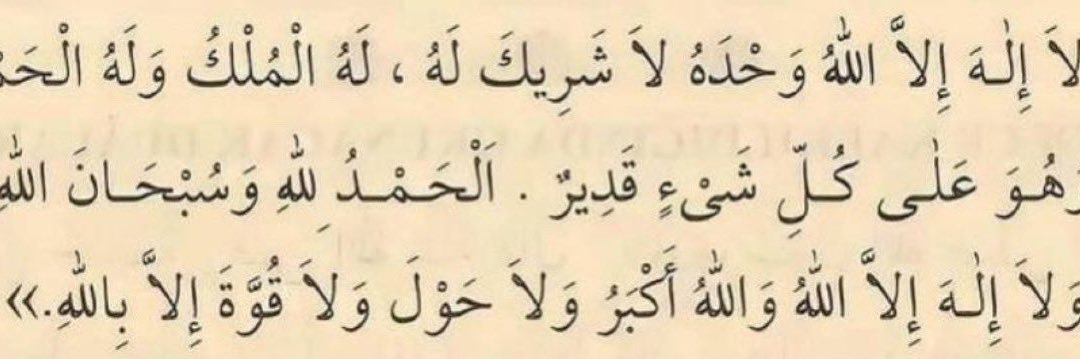 لاَ إِلٰـهَ إِلاَّ اللّٰهُ وَحْدَهُ لاَ شَرِيكَ لَهُ ، لَهُ الْمُلْكُ وَلَهُ الْحَمْ
وَهُـوَ عَلٰـى كُـلِّ شَىْءٍ قَدِيرٌ . اَلْحَـمْـدُ لِلّٰهِ وَسُبْحَـانَ اللّٰهِ
وَلاَ إِلٰـهَ إِلاَّ اللّٰهُ وَاللّٰهُ أَكْبَرُ وَلاَ حَوْلَ وَلاَ قُوَّةَ إِلاَّ بِاللّٰهِ.»